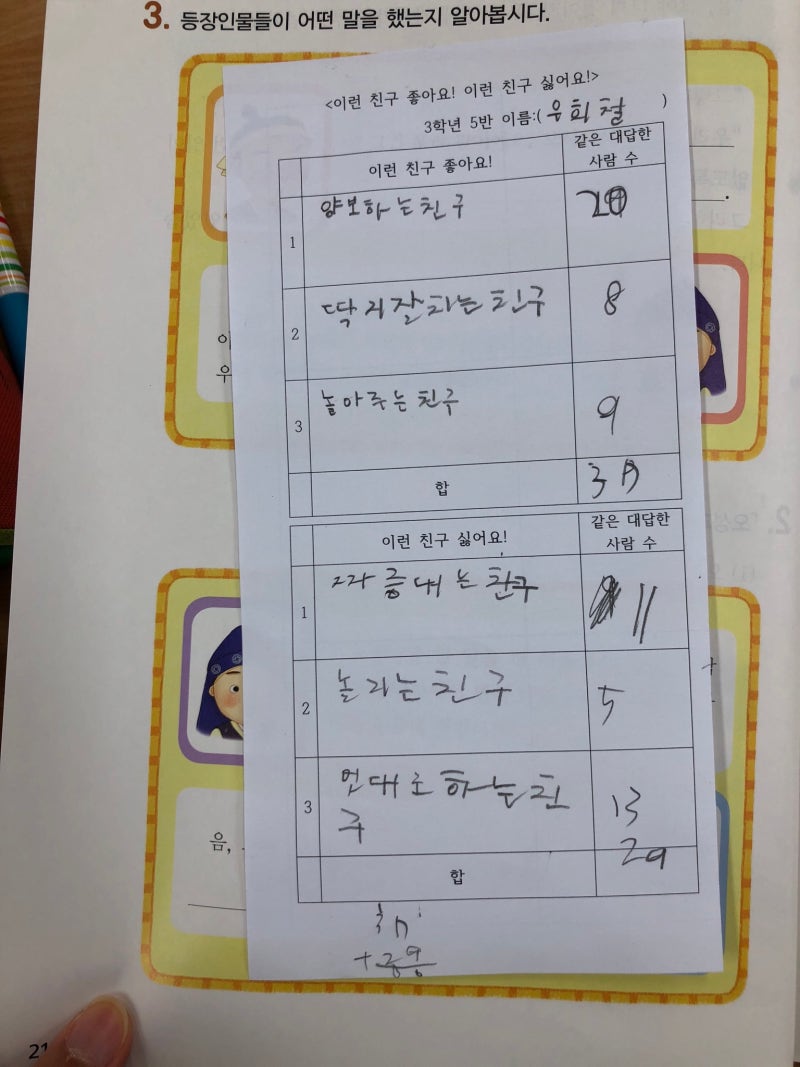 3. 등장인물들이 어떤 말을 했는지 알아봅시다.
<이런 친구 좋아요! 이런 친구 싫어요!>
3학년 5반 이름:( 우희철 )
이런 친구 좋아요! 같은 대답한
사람 수
1 양보하는친구
2 딱지잘치는친구 8
3 놀아주는친구 9
합
이런 친구 싫어요! 같은 대답한
사람 수
1 짜증내는친구 11
2 놀리는친구 5
3 먼대로하는친 13
구
합 29
음,
21